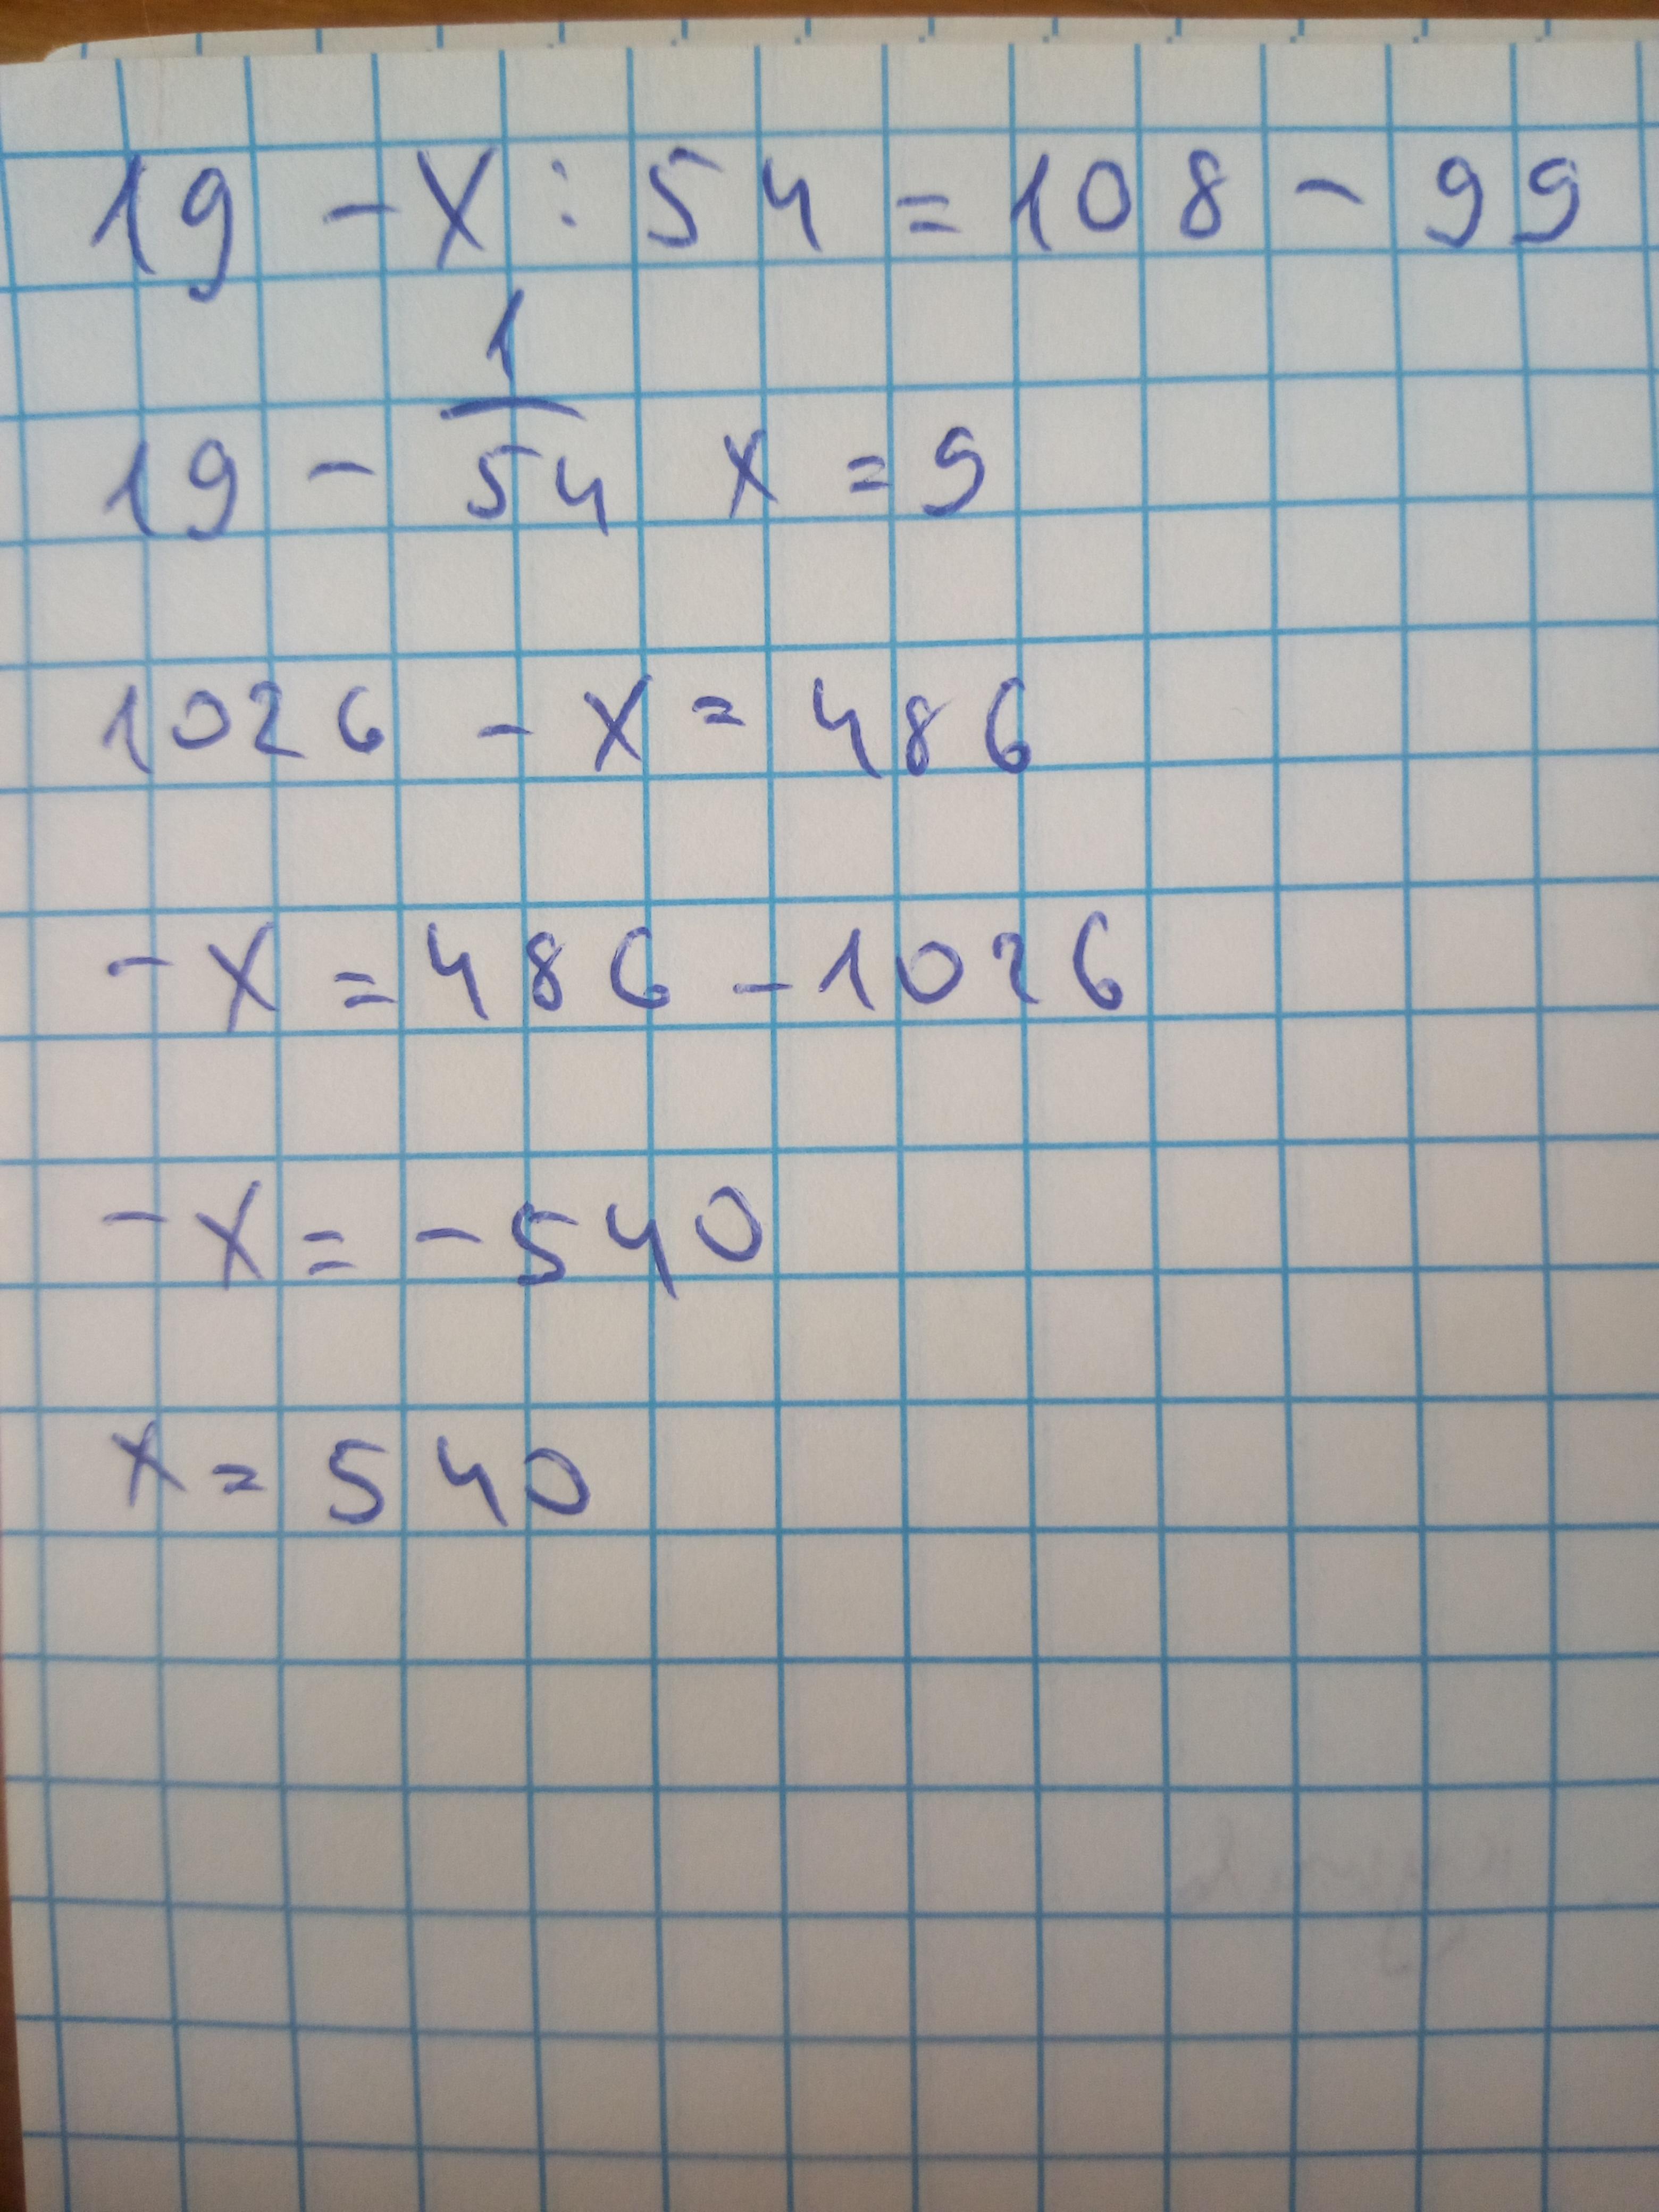 19 - x : 54 = 108 - 99
19 - 1/54 x = 9
1026 - x = 486
-x = 486 - 1026
-x = -540
x = 540